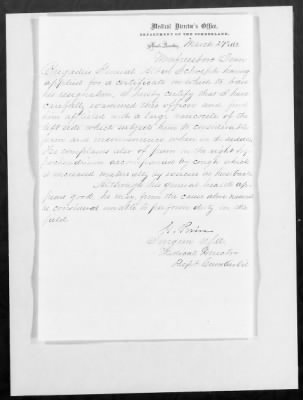 Medical Director's Office,
DEPARTMENT OF THE CUMBERLAND,
March 27th 186
Murfreesboro Tenn
Brigadier General Albin Schoepf having
applied for a certificate on which to base
his resignation, I hereby certify that I have
carefully examined this officer and find
him afflicted with a large varicocele of the
left side which subjects him to considerable
pain and inconvenience when in the saddle.
He complains also of pain in the right hy
pochondrium accompanied by cough which
is increased materially by exercise on horseback.
Although his general health ap
pears good, he may, from the cause above named
be considered unable to perform duty in the
field.
G. Perin
Surgeon U.S.A.
Medical Director
Dept Cumberland